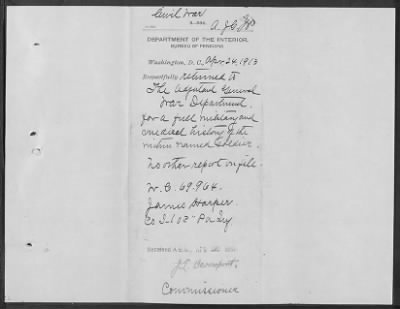 Civil War
3-304.
DEPARTMENT OF THE INTERIOR,
BUREAU OF PENSIONS,
Washington, D. C., Apr. 24, 1913
Respectfully returned to
The Adjutant General
War Department.
for a full military and
medical history of the
within named soldier.
No other report on file.
W. C. 69.964.
James Harper
Co I-102" Pa Inf
J. L. Davenport.
Commissioner